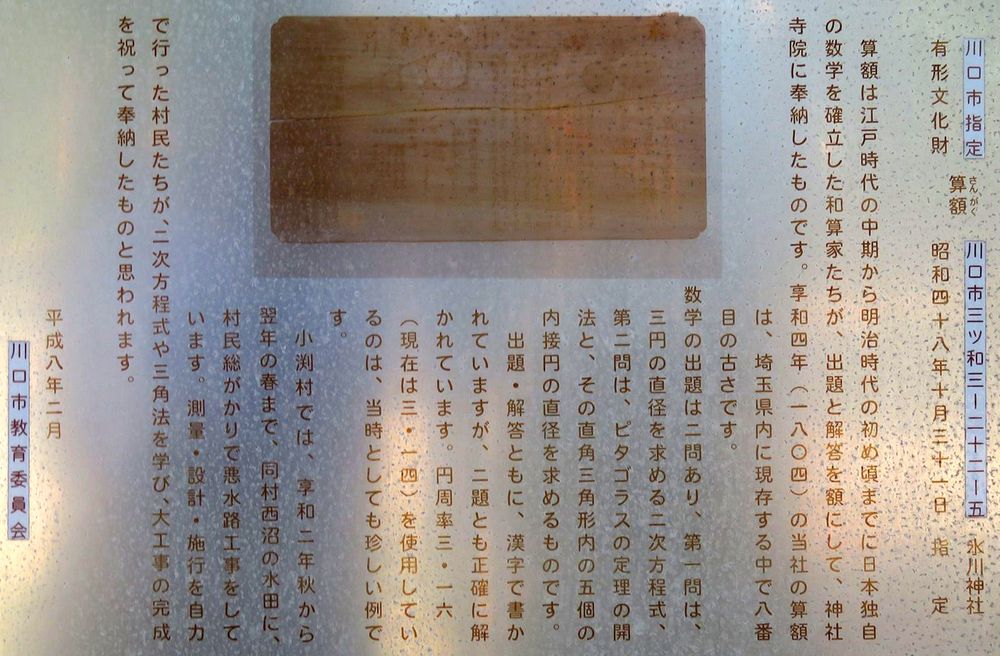 川口市指定
有形文化財
算額
さんがく
川口市三ツ和三ー二十二ー五 氷川神社
昭和四十八年十月三十一日 指 定
算額は江戸時代の中期から明治時代の初め頃までに日本独自
の数学を確立した和算家たちが、出題と解答を額にして、神社
寺院に奉納したものです。享和四年（一八〇四）の当社の算額
は、埼玉県内に現存する中で八番
目の古さです。
数学の出題は二問あり、第一問は、
三円の直径を求める二次方程式、
第二問は、ピタゴラスの定理の開
法と、その直角三角形内の五個の
内接円の直径を求めるものです。
出題・解答ともに、漢字で書か
れていますが、二題とも正確に解
かれています。円周率三・一六
（現在は三・一四）を使用してい
るのは、当時としても珍しい例で
す。
小渕村では、享和二年秋から
翌年の春まで、同村西沼の水田に、
村民総がかりで悪水路工事をして
います。測量・設計・施行を自力
で行った村民たちが、二次方程式や三角法を学び、大工事の完成
を祝って奉納したものと思われます。
平成八年二月
川口市教育委員会